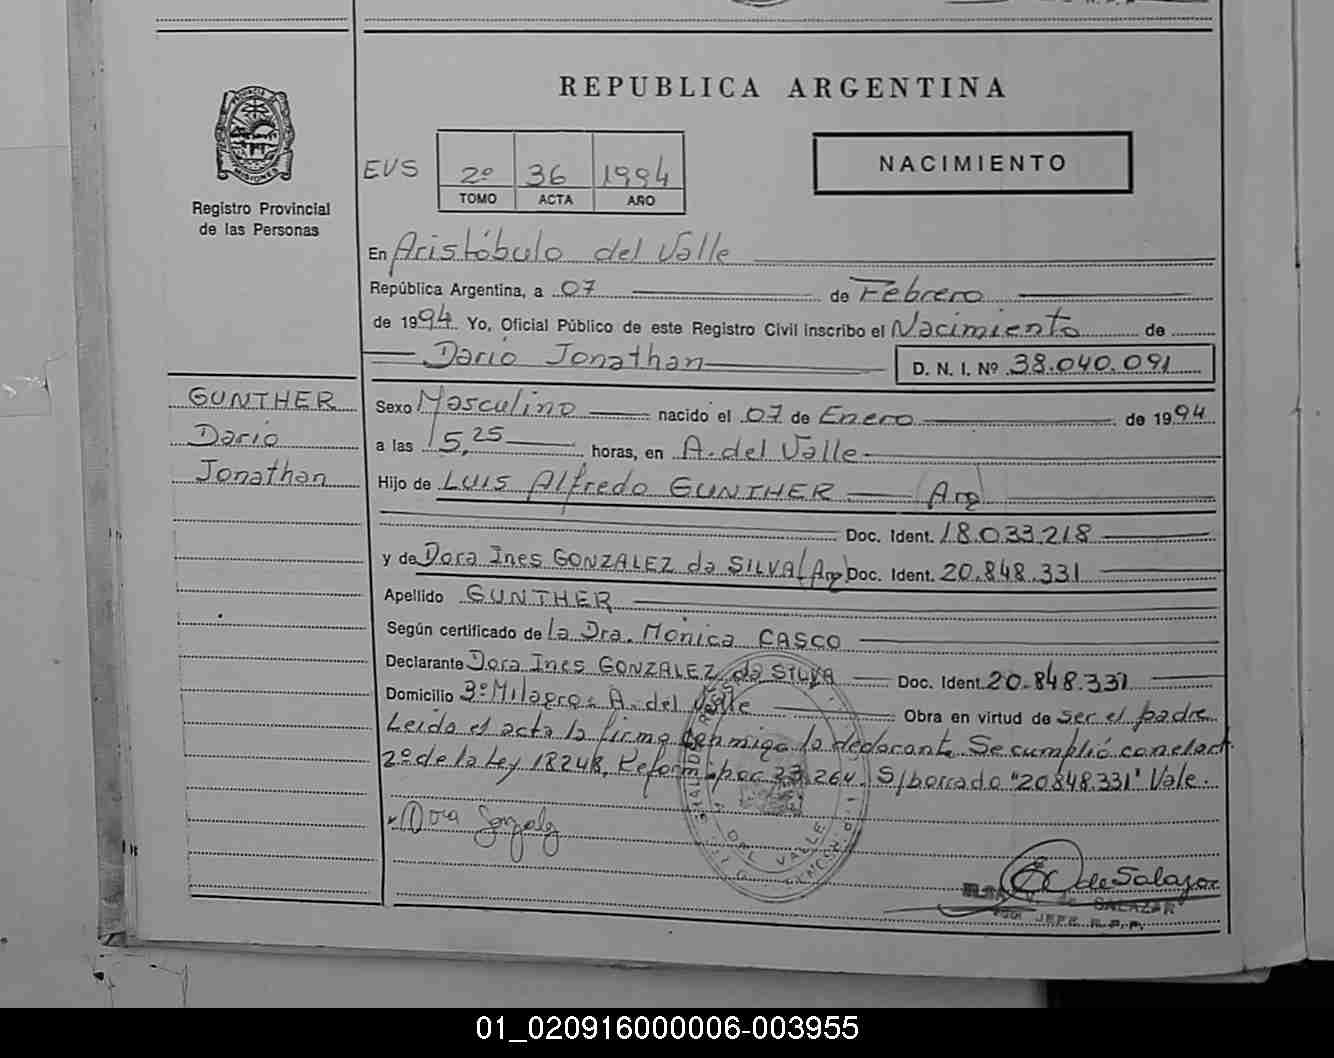 REPUBLICA ARGENTINA
PROVINCIA DE
MISIONES
Registro Provincial
de las Personas
EVS
2º 36 1994
TOMO ACTA AÑO
NACIMIENTO
En Aristóbulo del Valle
República Argentina, a 07 de Febrero
de 1994 Yo, Oficial Público de este Registro Civil inscribo el Nacimiento de
Dario Jonathan D. N. I. Nº 38.040.091
GUNTHER
Dario
Jonathan
Sexo Masculino nacido el 07 de Enero de 1994
a las 15,25 horas, en A. del Valle
Hijo de LUIS Alfredo GUNTHER (Arg)
Doc. Ident. 18.033.218
y de Dora Ines GONZALEZ da SILVA (Arg) Doc. Ident. 20.848.331
Apellido GUNTHER
Según certificado de la Dra. Mónica CASCO
Declarante Dora Ines GONZALEZ da SILVA Doc. Ident. 20.848.331
Domicilio 3º Milagro - A. del Valle Obra en virtud de ser el padre
Leido el acta la firma conmigo la declarante. Se cumplió con el art
2º de la Ley 18248, Reform. por 23.264. S/borrado "20.848.331" Vale.
Dora Gonzalez
DEL VALLE
de Salazar
ELSA V. de SALAZAR
JEFE R.P.P.
01_020916000006-003955